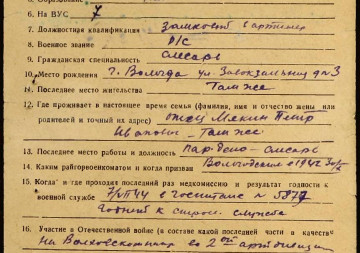 6. На ВУС 7
7. Должностная квалификация замковый в артиллер
8. Военное звание р/с
9. Гражданская специальность слесарь
10. Место рождения г. Вологда ул. Завокзальная д. 3
11. Последнее место жительства Там же
12. Где проживает в настоящее время семья (фамилия, имя и отчество жены или
родителей и точный их адрес) отец Мякин Петр
Иванович Там же
13. Последнее место работы и должность пар. депо-слесарь
14. Каким райгорвоенкоматом и когда призван Вологодским в 1942
15. Когда и где проходил последний раз медкомиссию и результат годности к
военной службе 7/VII 44 в госпитале № 5879
Годный к строев. службе
16. Участие в Отечественной войне (в составе какой последней части и в качестве
на Волховском в 2ой артдивизии